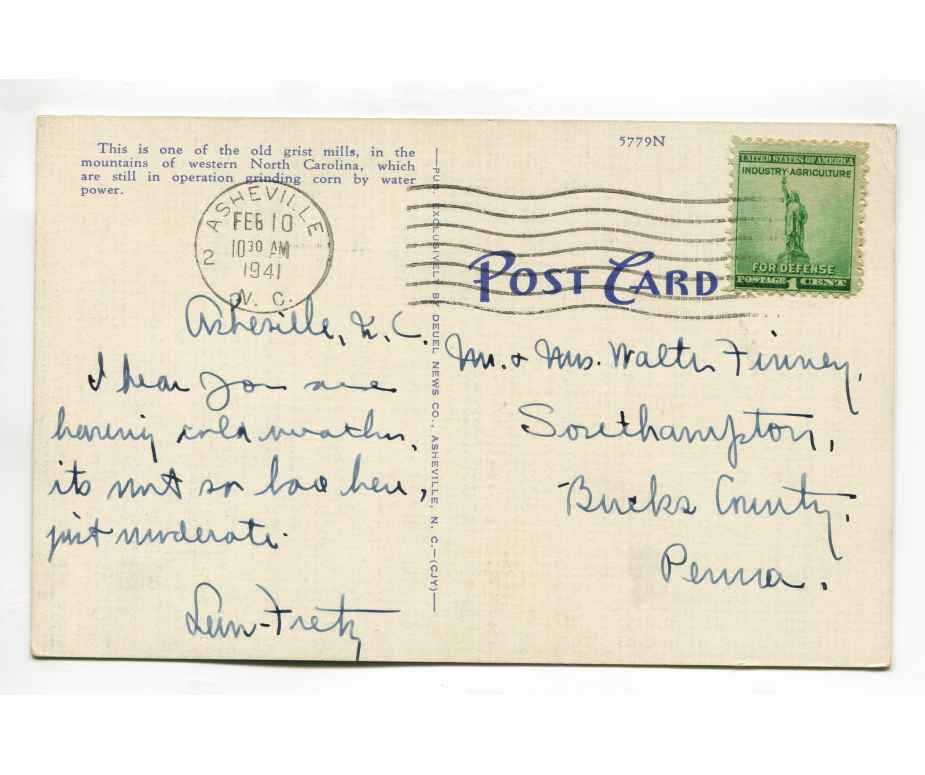 This is one of the old grist mills, in the
mountains of western North Carolina, which
are still in operation grinding corn by water
power.
5779N
ASHEVILLE
FEB 10
10 30 AM
1941
2
N. C.
UNITED STATES OF AMERICA
INDUSTRY·AGRICULTURE
FOR DEFENSE
POSTAGE 1 CENT
POST CARD
—PUB. EXCLUSIVELY BY DEUEL NEWS CO., ASHEVILLE, N. C.—(CJY)—
Asheville, N.C.
I hear you are
having cold weather,
its not so bad here,
just moderate.
Fretz
Mr. & Mrs. Walter Finney,
Southampton,
Bucks County,
Penna.